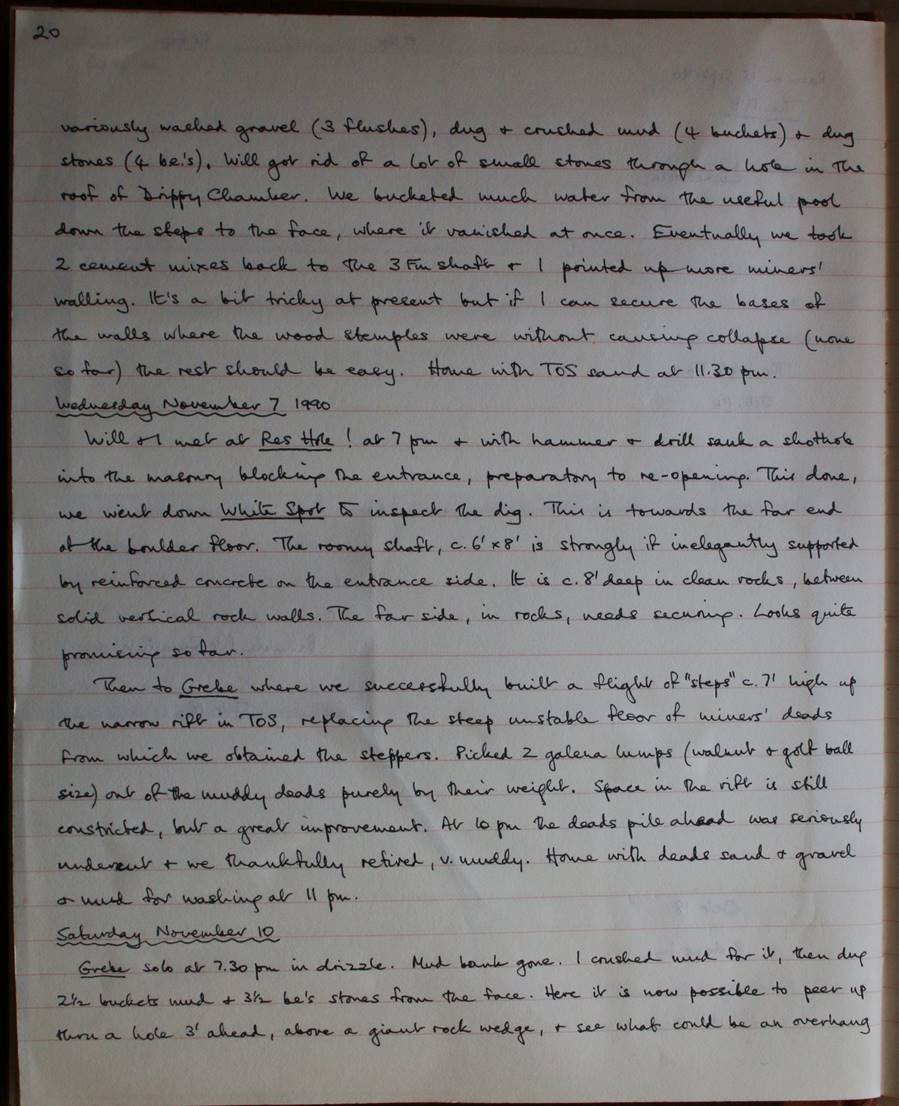 20
variously washed gravel (3 flushes), dug + crushed mud (4 buckets) + dug
stones (4 be's). Will got rid of a lot of small stones through a hole in the
roof of Drippy Chamber. We bucketed much water from the useful pool
down the steps to the face, where it vanished at once. Eventually we took
2 cement mixes back to the 3 Fm shaft + I pointed up more miners'
walling. It's a bit tricky at present but if I can secure the bases of
the walls where the wood stemples were without causing collapse (none
so far) the rest should be easy. Home with TOS sand at 11.30 pm.
Wednesday November 7 1990
Will + I met at Res Hole! at 7 pm + with hammer + drill sank a shothole
into the masonry blocking the entrance, preparatory to re-opening. This done,
we went down White Spot to inspect the dig. This is towards the far end
of the boulder floor. The roomy shaft, c. 6' x 8' is strongly if inelegantly supported
by reinforced concrete on the entrance side. It is c. 8' deep in clean rocks, between
solid vertical rock walls. The far side, in rocks, needs securing. Looks quite
promising so far.
Then to Grebe where we successfully built a flight of "steps" c. 7' high up
the narrow rift in TOS, replacing the steep unstable floor of miners' deads
from which we obtained the steppers. Picked 2 galena lumps (walnut + golf ball
size) out of the muddy deads purely by their weight. Space in the rift is still
constricted, but a great improvement. At 10 pm the deads pile ahead was seriously
undercut + we thankfully retired, v. muddy. Home with deads sand + gravel
+ mud for washing at 11 pm.
Saturday November 10
Grebe solo at 7.30 pm in drizzle. Mud bank gone. I crushed mud for it, then dug
2½ buckets mud + 3½ be's stones from the face. Here it is now possible to peer up
thru a hole 3' ahead, above a giant rock wedge, + see what could be an overhang